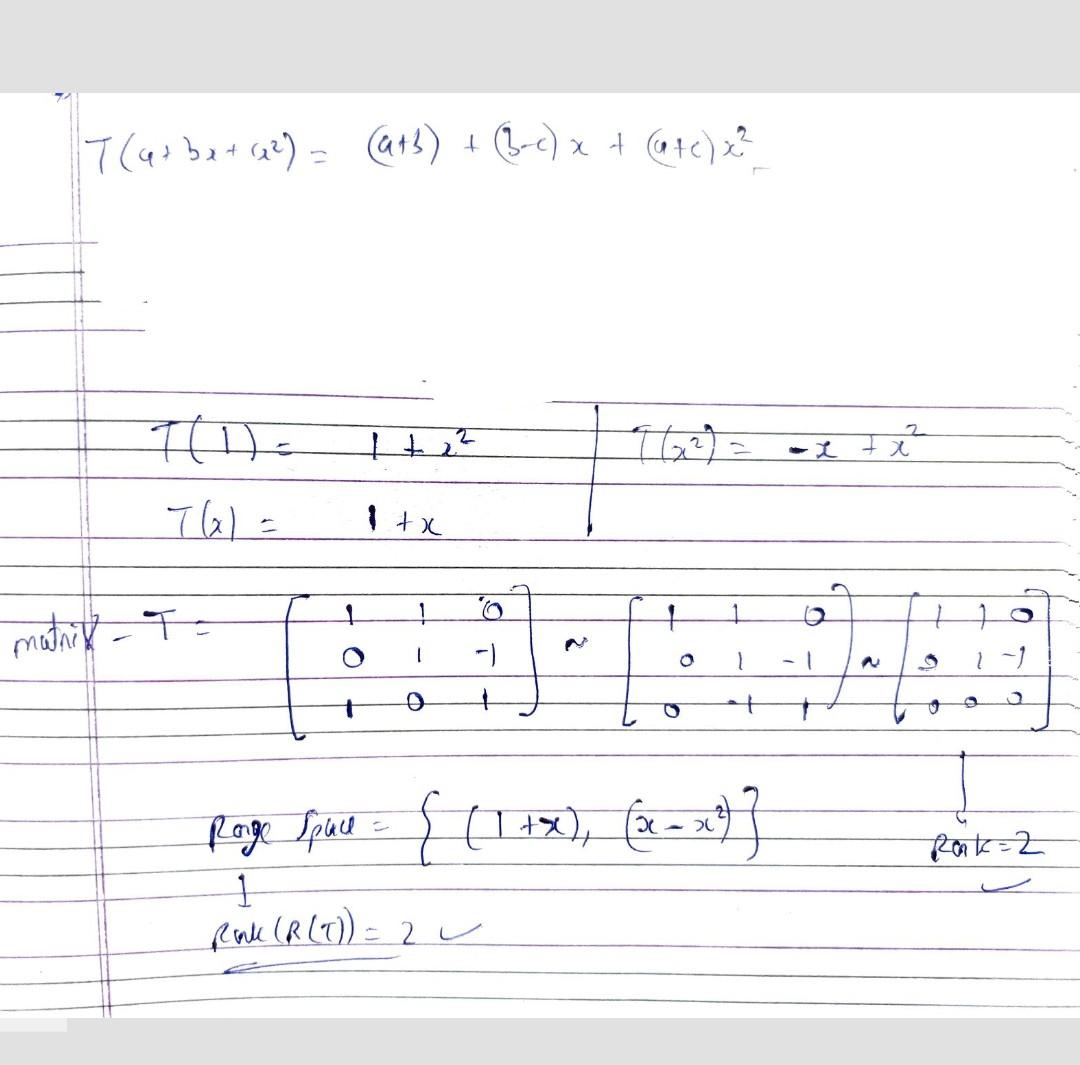 T(a+bx+cx²) = (a+b) + (b-c)x + (a+c)x²
T(1) = 1 + x² | T(x²) = -x + x²
T(x) = 1 + x
matrix - T = [1 1 0; 0 1 -1; 1 0 1] ~ [1 1 0; 0 1 -1; 0 -1 1] ~ [1 1 0; 0 1 -1; 0 0 0]
Range Space = { (1+x), (x-x²) }
Rank = 2 ✓
Rank (R(T)) = 2 ✓